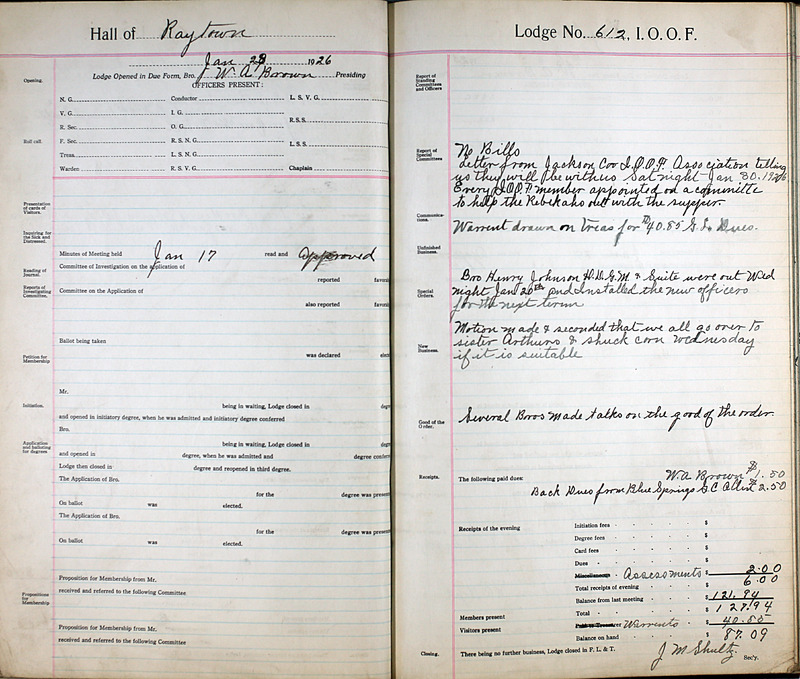 Hall of Raytown
Jan 28 1926
Lodge Opened in Due Form, Bro. J. W. A. Brown Presiding
OFFICERS PRESENT:
Opening.
N. G. Conductor L. S. V. G.
V. G. I. G.
R. S. S.
R. Sec. O. G.
Roll call.
F. Sec. R. S. N. G. L. S. S.
Treas. L. S. N. G.
Warden R. S. V. G. Chaplain
Presentation of cards of Visitors.
Inquiring for the Sick and Distressed.
Minutes of Meeting held Jan 17 read and approved
Reading of Journal.
Committee of Investigation on the application of
reported favor
Reports of Investigating Committee.
Committee on the Application of
also reported favor
Ballot being taken
was declared elec
Petition for Membership
Mr.
Initiation.
being in waiting, Lodge closed in degr
and opened in initiatory degree, when he was admitted and initiatory degree conferred
Bro.
Application and balloting for degrees.
being in waiting, Lodge closed in degr
and opened in degree, when he was admitted and degree confer
Lodge then closed in degree and reopened in third degree.
The Application of Bro.
for the degree was presen
On ballot was elected.
The Application of Bro.
for the degree was presen
On ballot was elected.
Propositions for Membership
Proposition for Membership from Mr.
received and referred to the following Committee
Proposition for Membership from Mr.
received and referred to the following Committee
Lodge No. 612, I. O. O. F.
Report of Standing Committees and Officers
Report of Special Committees
No Bills
Letter from Jackson Coo I.O.O.F. Association telling
us they will be with us Sat night Jan 30. 1926
Every I.O.O.F. member appointed on a committe
to help the Rebekahs out with the supper.
Communications.
Warrent drawn on Treas for $40.85 G. L. Dues.
Unfinished Business.
Special Orders.
Bro Henry Johnson D.D.G.M. & Suite were out Wed
night Jan 20th and Installed the new officers
for the next term
New Business.
Motion made & seconded that we all go over to
sister Arthurs & shuck corn Wednesday
if it is suitable
Good of the Order.
Several Bros made talks on the good of the order.
Receipts.
The following paid dues: W. A. Brown $1.50
Back Dues from Blue Springs G C $2.50
Receipts of the evening
Initiation fees $
Degree fees $
Card fees $
Dues $
Miscellaneous Assessments $ 2.00
Total receipts of evening $ 6.00
Balance from last meeting $ 121.94
Members present
Total $ 127.94
Visitors present
Paid to Treasurer Warrents $ 40.85
Balance on hand $ 87.09
Closing.
There being no further business, Lodge closed in F. L. & T.
J M Shultz. Sec'y.